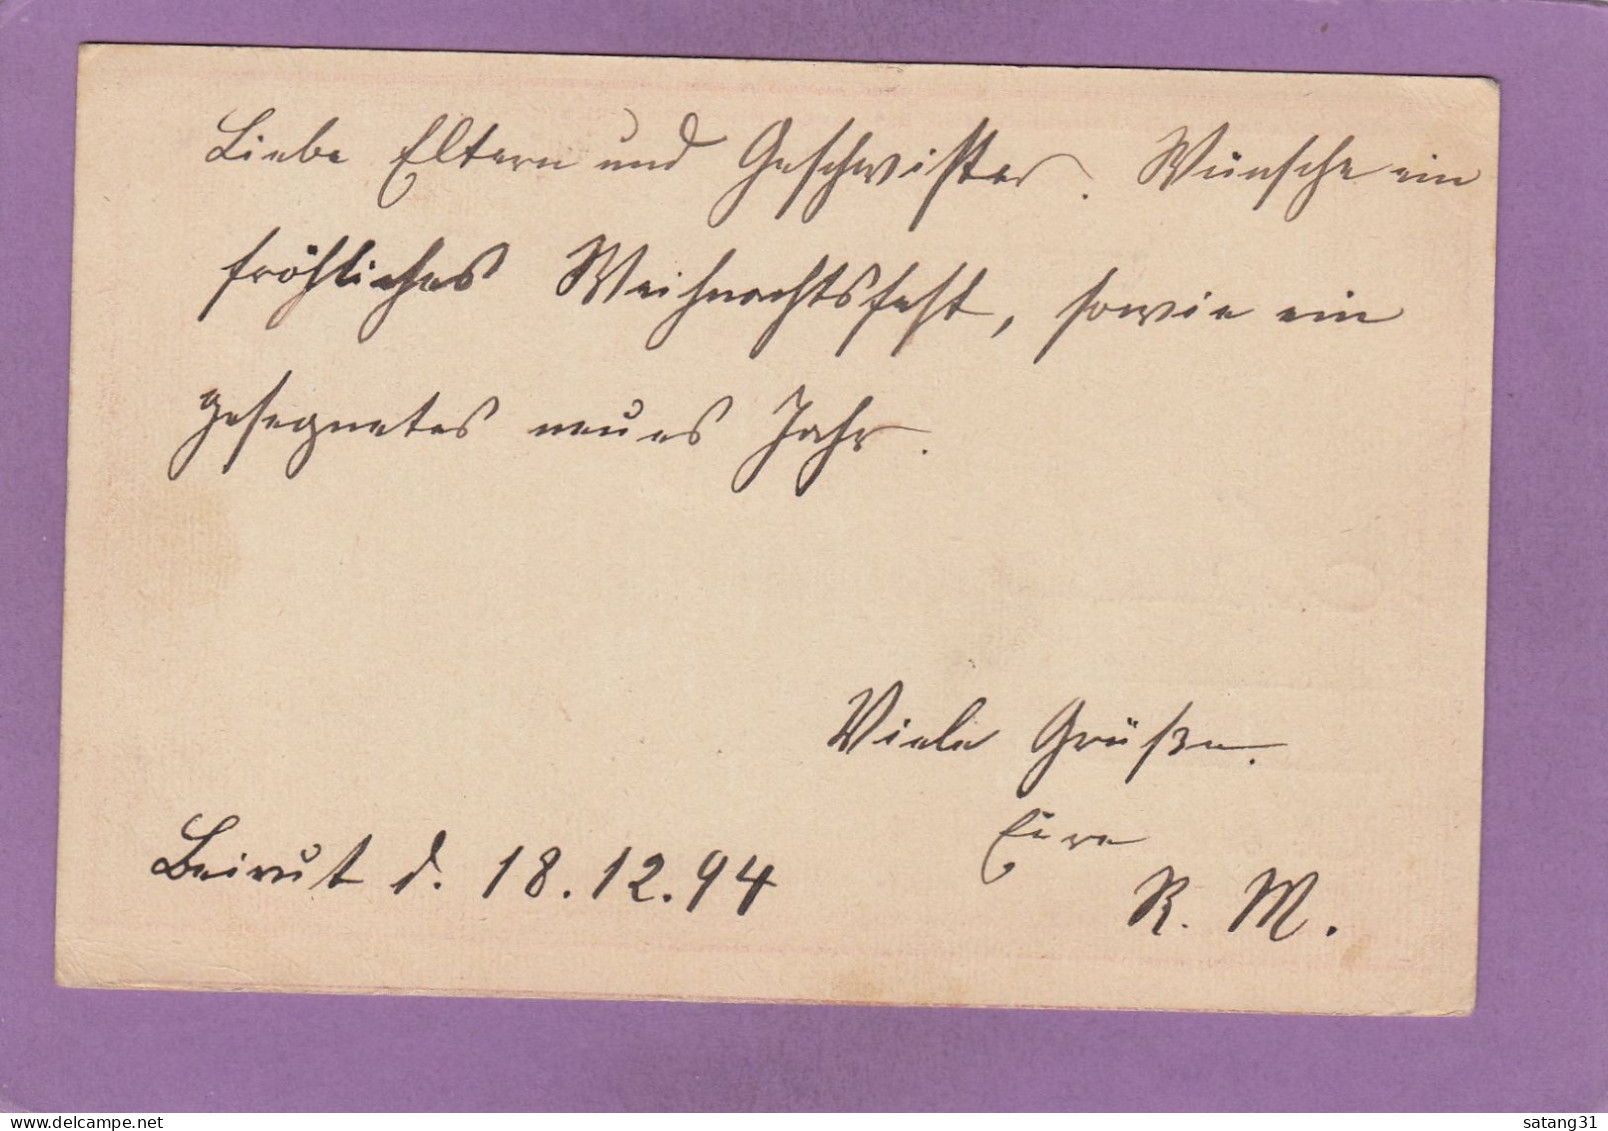 Liebe Eltern und Geschwister. Wünsche ein
fröhliches Weihnachtsfest, sowie ein
gesegnetes neues Jahr.
Viele Grüße.
Eure
R. M.
Beirut d. 18.12.94
delcampe.net
satang31